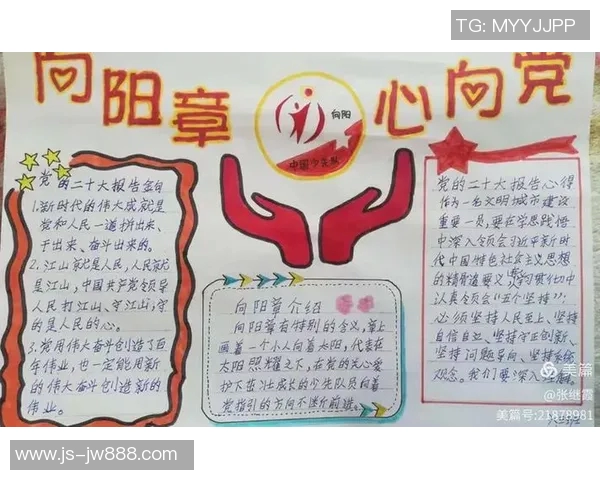 TG: MYYJJPP
向阳章 心向党
向阳
中国少先队
党的二十大报告金句
1.新时代的伟大成就是
党和人民一道拼出来、
干出来、奋斗出来的。
2.江山就是人民,人民就
是江山,中国共产党领导
人民打江山、守江山,守
的是人民的心。
3.常用伟大奋斗创造了百
年伟业,也一定能用新
的伟大奋斗创造新的
伟业。
向阳章介绍
向阳章有特别的含义,章上
画着一个小人向着太阳,代表在
太阳照耀之下,在党的关心爱
护下茁壮成长的少先队员向着
党指引的方向不断前进。
党的二十大报告心得
作为一名文明城市建设
重要一员,要在学思践悟
中深入领会习近平新时
代中国特色社会主义思想
的精髓道要义,学习贯彻中
认真领会“五个坚持”,
必须坚持人民至上、坚持
自信自立、坚持守正创新、
坚持问题导向、坚持系统
观念。我们要深入
美篇
@张继霞
美篇号:21878981
www.js-jw888.com